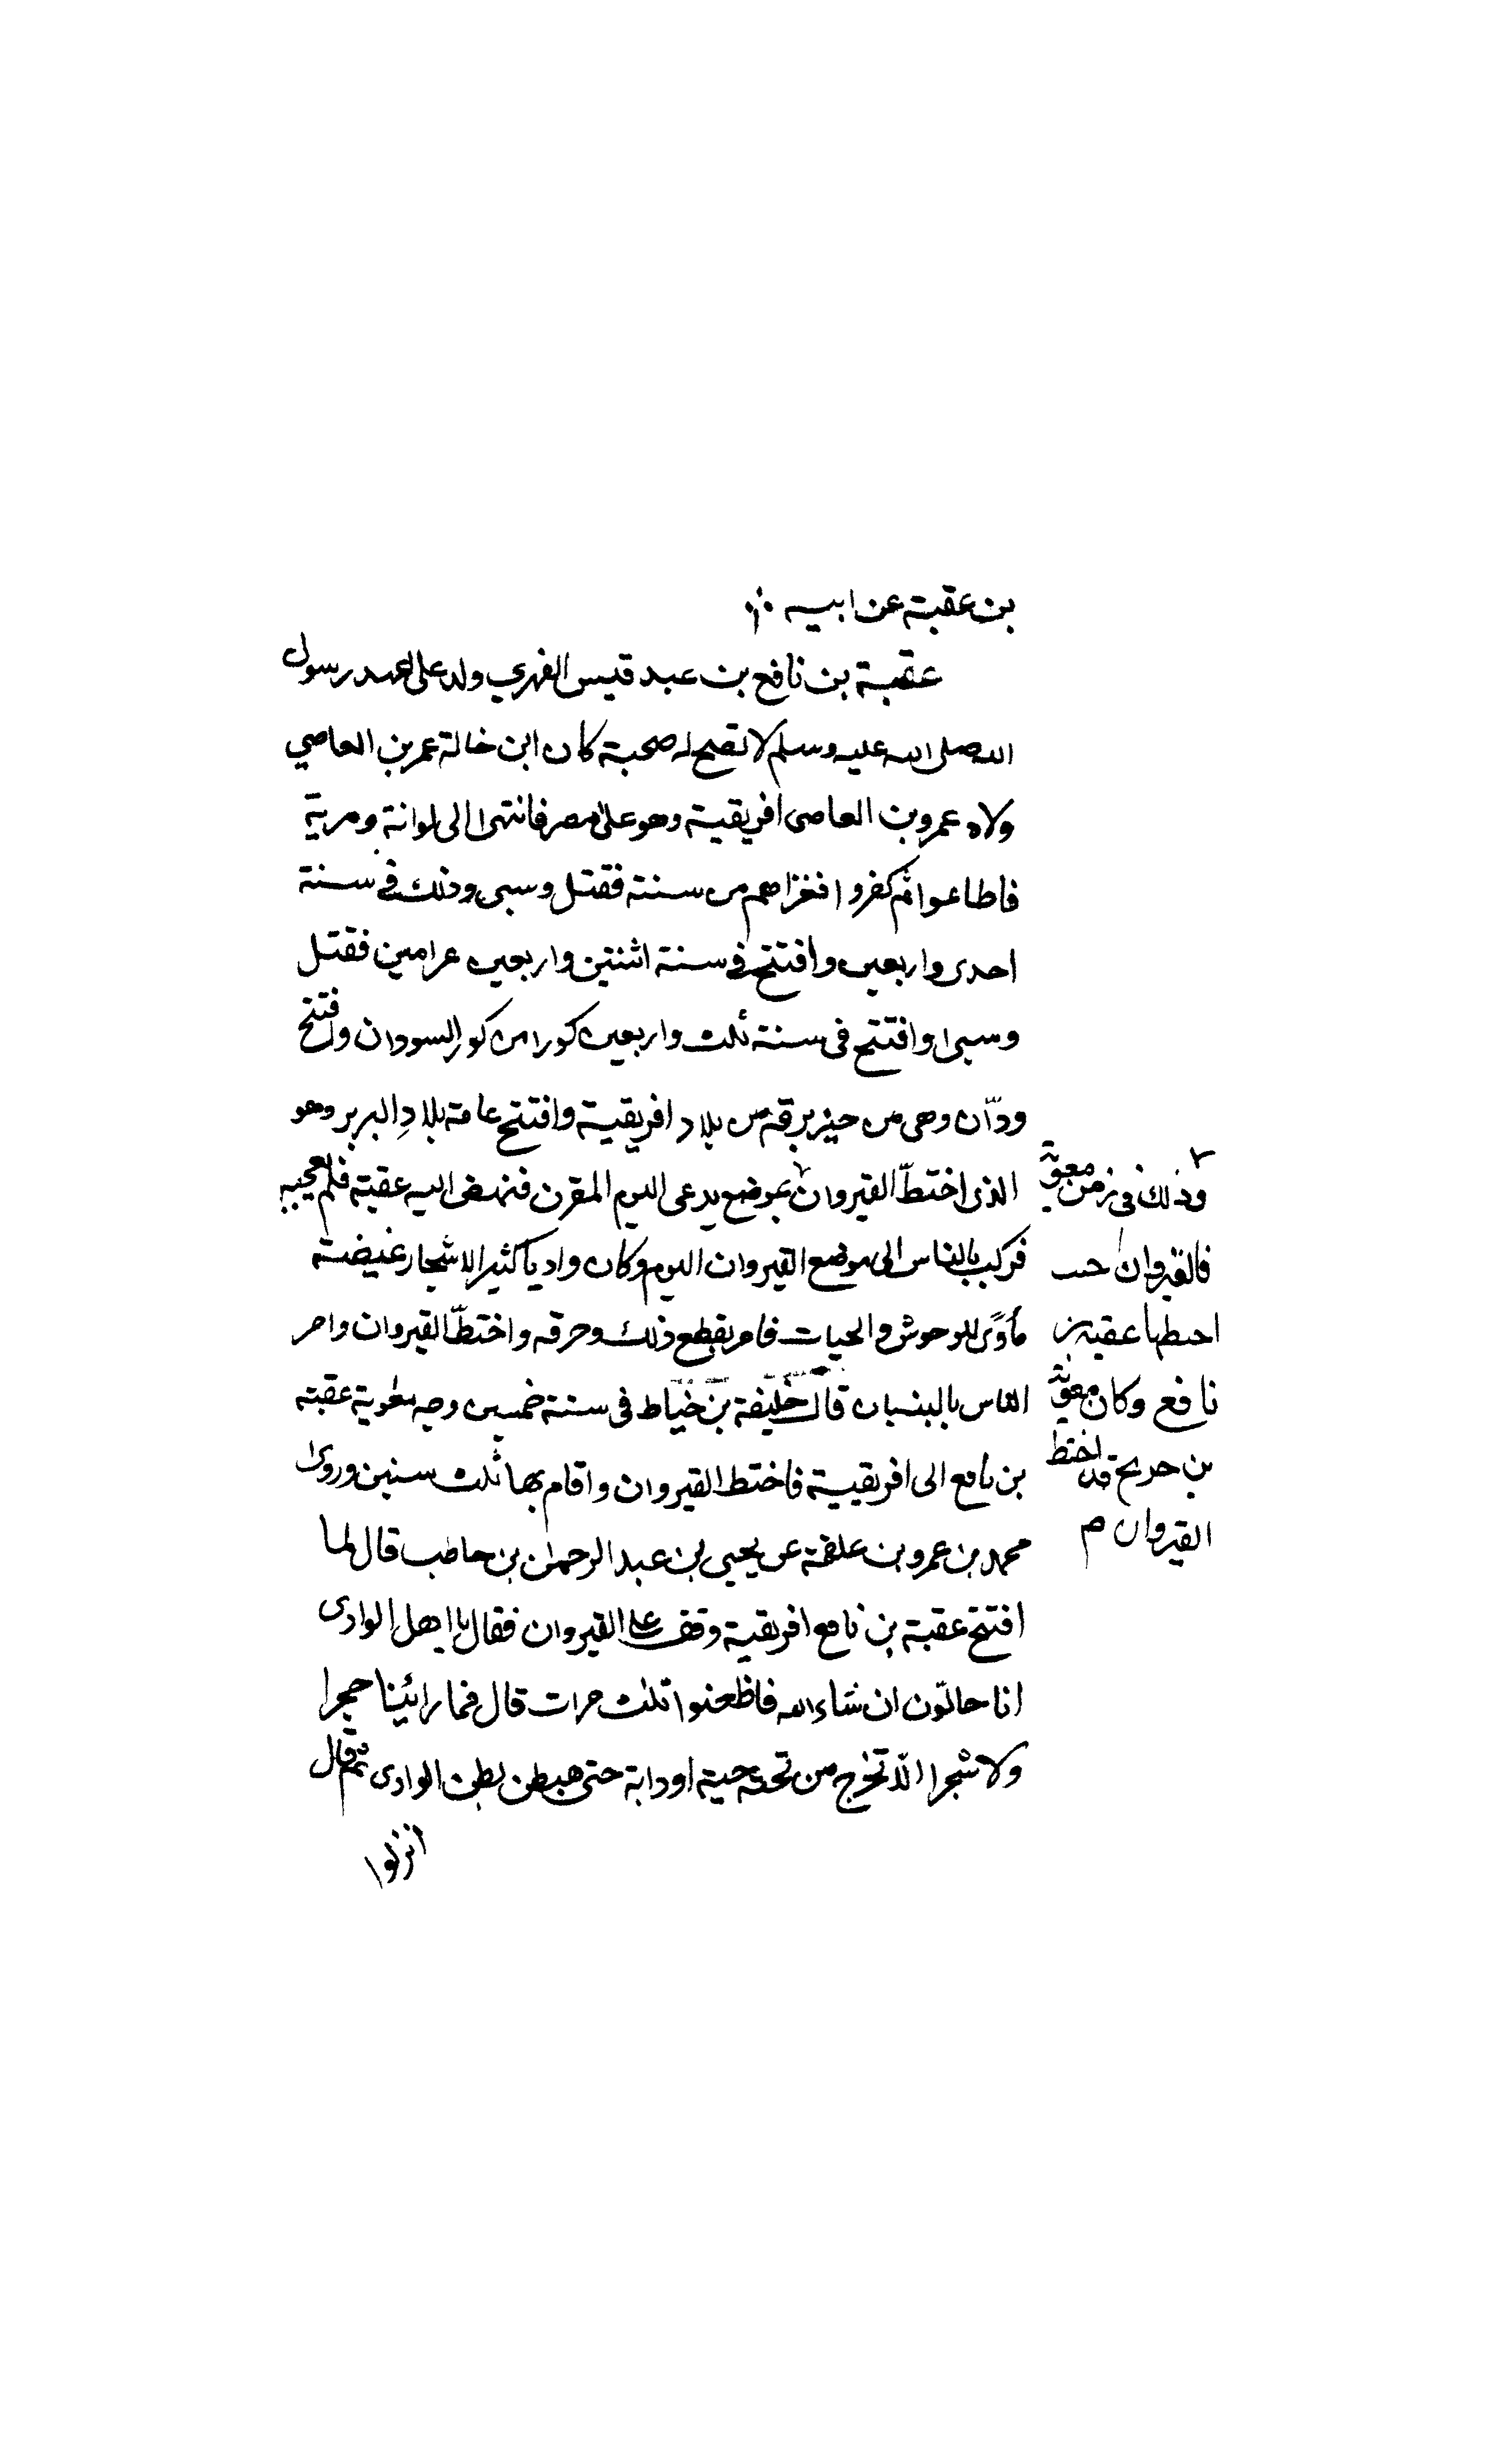 بن عقبة عن ابيه
عقبة بن نافع بن عبد قيس الفهري ولد على عهد رسول
الله صلى الله عليه وسلم لا تصح له صحبة كان ابن خالة عمر بن العاصي
ولاه عمرو بن العاصى افريقية وهو على مصر فانتهى الى لواتة ومرية
فاطاعوا ثم كفروا فغزاهم من سنته فقتل وسبى وذلك في سنة
احدى واربعين وافتتح في سنة اثنتين واربعين غرامين فقتل
وسبى وافتتح فى سنة ثلث واربعين كورا من كور السودان وافتتح
ودّان وهى من حيز برقة من بلاد افريقية وافتتح عامة بلادِ البربر وهو
الذى اختطّ القيروان بموضع يدعى اليوم المقرن فنهض اليه عقبة فلم يعجبه
فركب بالناس الى موضع القيروان اليوم وكان واديا كثير الاشجار غيضة
مأوًى للوحوش والحيات فامر بقطع ذلك وحرقه واختطّ القيروان وامر
الناس بالبنيان قال خليفة بن خياط فى سنة خمسين وجه معوية عقبة
بن نافع الى افريقية فاختط القيروان واقام بها ثلث سنين وروى
محمد بن عمرو بن علقمة عن يحيى بن عبد الرحمن بن حاطب قال لما
افتتح عقبة بن نافع افريقية وقف على القيروان فقال يا اهل الوادى
انا حالّون ان شاء الله فاظعنوا ثلث مرات قال فما رائينا حجرا
ولا شجرا الّا تخرج من تحته حية او دابة حتى هبطن بطن الوادى ثم قال
انزلوا
وذلك فى زمن معوية
فالقيروان حيث
اختطها عقبة بن
نافع وكان معوية
بن حديج قد اختط
القيروان